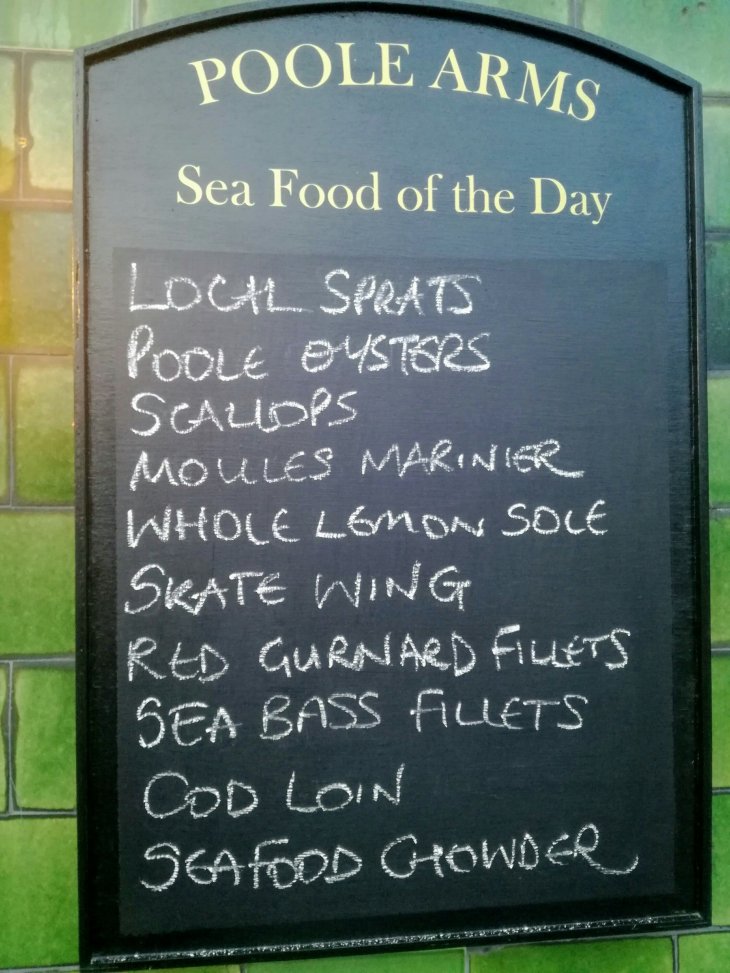 POOLE ARMS
Sea Food of the Day
LOCAL SPRATS
POOLE OYSTERS
SCALLOPS
MOULES MARINIER
WHOLE LEMON SOLE
SKATE WING
RED GURNARD FILLETS
SEA BASS FILLETS
COD LOIN
SEAFOOD CHOWDER